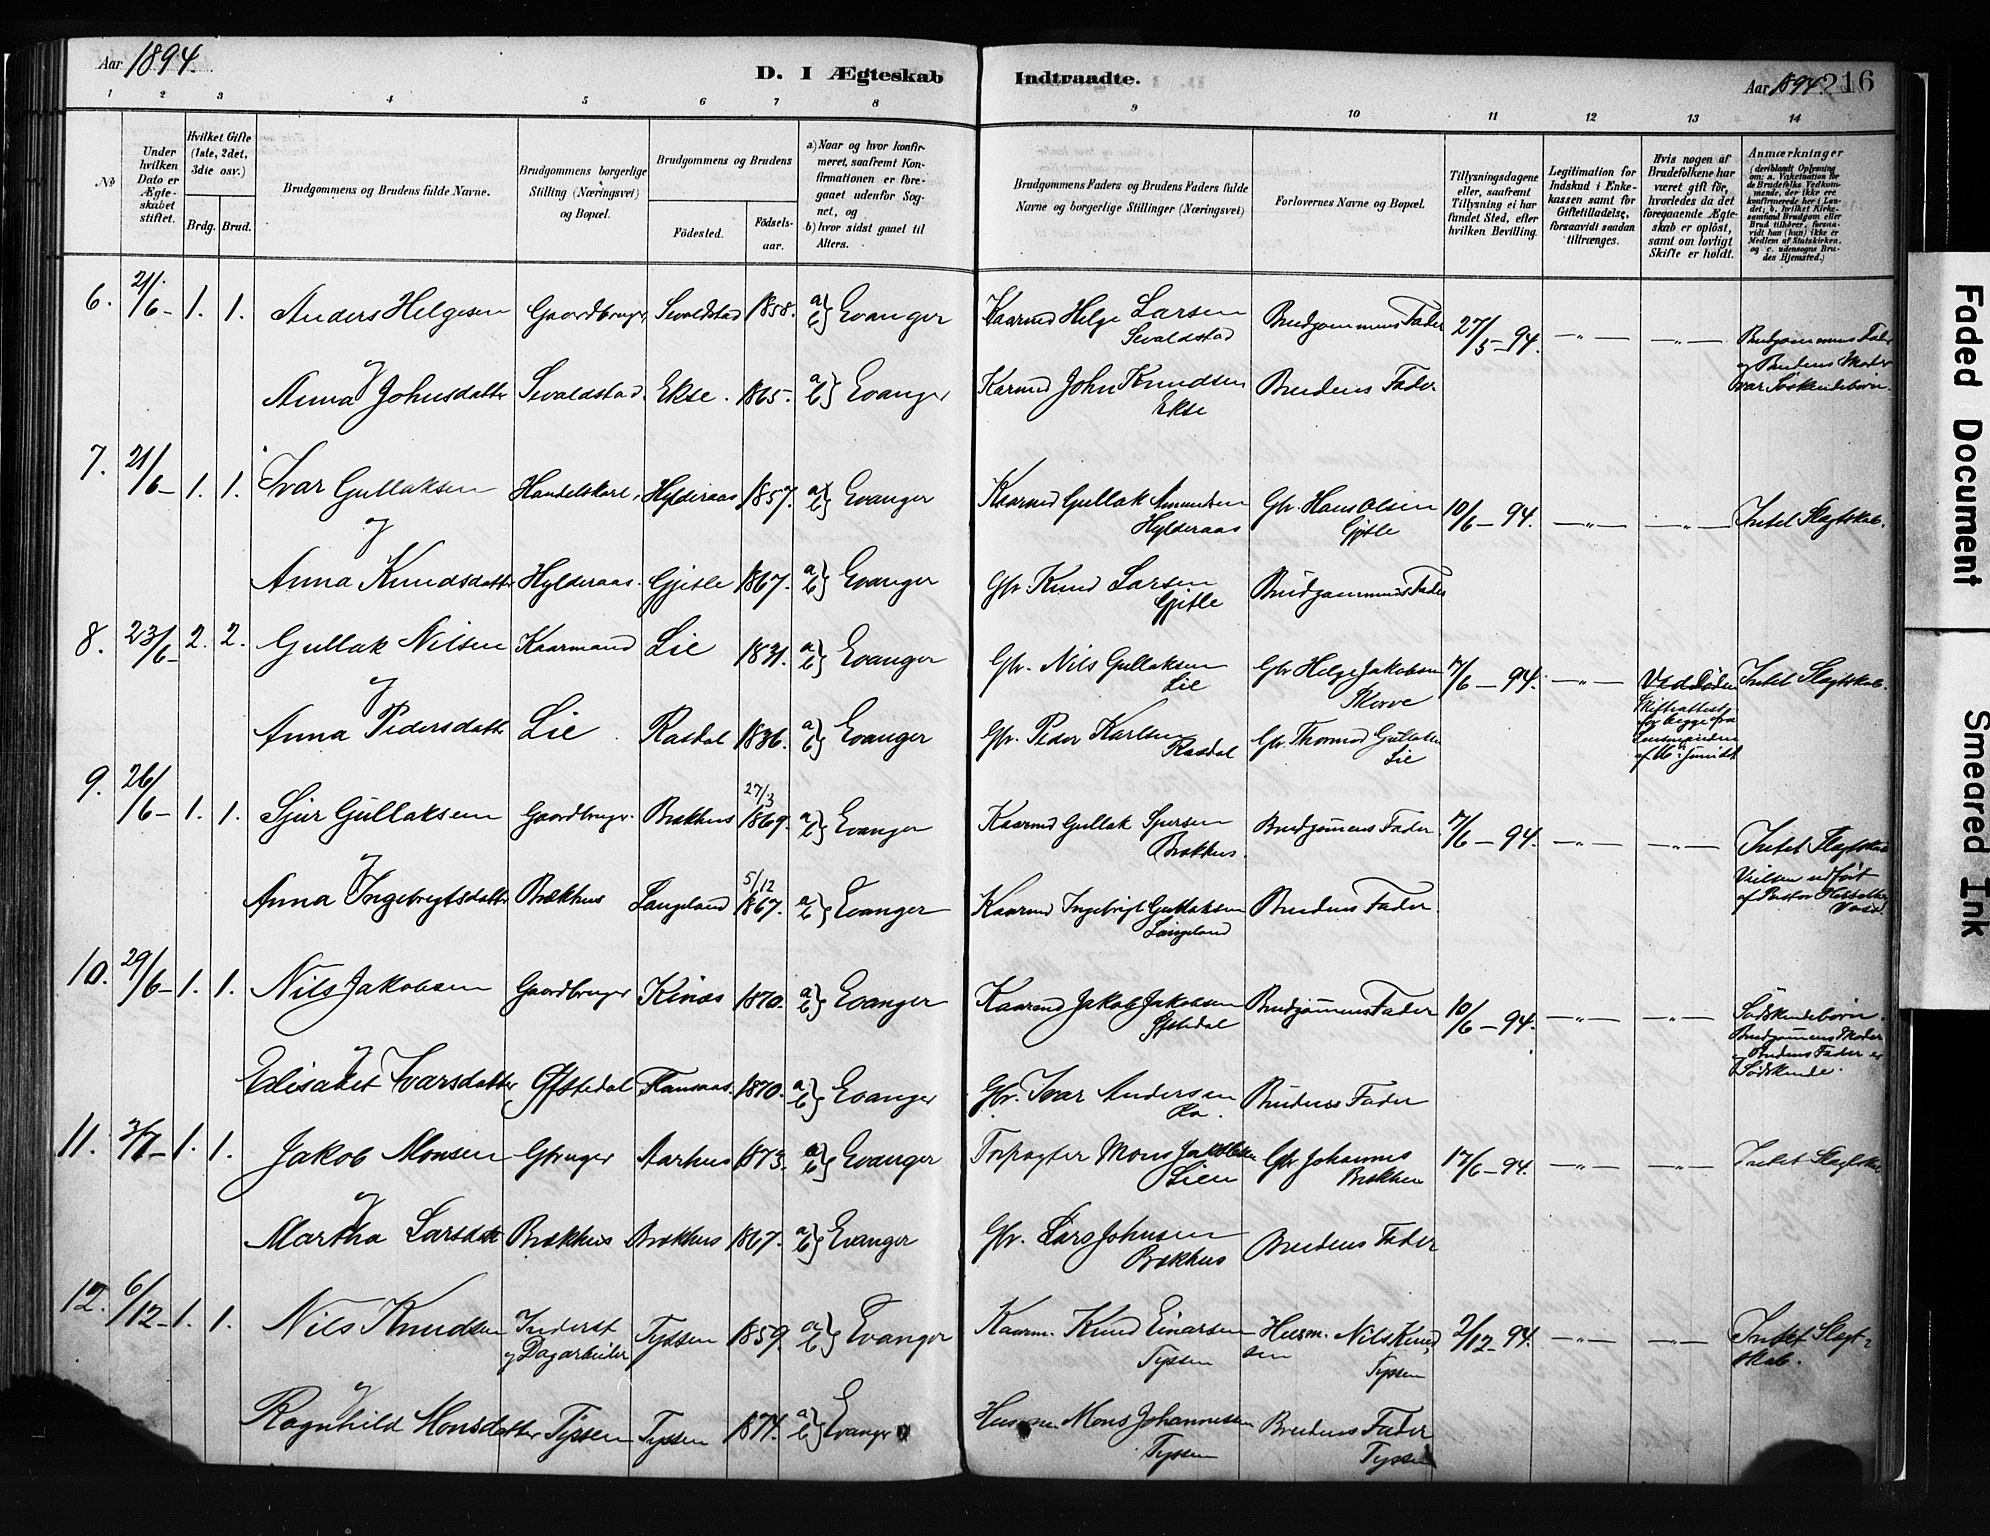 Aar 1894.
D. I Ægteskab Indtraadte.
Aar 1894. 216
1 2 3 4 5 6 7 8 9 10 11 12 13 14
№
Under hvilken Dato er Ægteskabet stiftet.
Hvilket Gifte (1ste, 2det, 3die osv.)
Brdg. Brud.
Brudgommens og Brudens fulde Navne.
Brudgommens borgerlige Stilling (Næringsvei) og Bopæl.
Brudgommens og Brudens
Födested.
Födselsaar.
a) Naar og hvor konfirmeret, saafremt Konfirmationen er foregaaet udenfor Sognet, og
b) hvor sidst gaaet til Alters.
Brudgommens Faders og Brudens Faders fulde Navne og borgerlige Stillinger (Næringsvei)
Forlovernes Navne og Bopæl.
Tillysningsdagene eller, saafremt Tillysning ei har fundet Sted, efter hvilken Bevilling.
Legitimation for Indskud i Enkekassen samt for Giftetilladelse, forsaavidt saadan tiltrænges.
Hvis nogen af Brudefolkene har været gift för, hvorledes da det foregaaende Ægteskab er oplöst, samt om lovligt Skifte er holdt.
Anmærkninger
(deriblandt Oplysning om: a. Vakcination for de Brudefolks Vedkommende, der ikke ere konfirmerede her i Landet; b. hvilket Kirkesamfund Brudgom eller Brud tilhörer, forsaavidt han (hun) ikke er Medlem af Statskirken, og c. udensogns Brudes Hjemsted.)
6. 21/6 - 1. 1. Anders Helgesen Gaardbruger Sevaldstad 1858. a) b) Evanger Kaarmd Helge Larsen Sevaldstad Brudgommens Fader 27/5 - 94. —"— —"— Brudgommens Fader og Brudens Moder var Söskendebörn.
og
Anna Johnsdatter Sevaldstad Ekse. 1865. a) b) Evanger Karmd John Knudsen Ekse Brudens Fader
7. 21/6 - 1. 1. Ivar Gullaksen Handelskarl, Hylderaas 1857. a) b) Evanger Kaarmd Gullak Amundsen Hylderaas Gbr. Hans Olsen Gjitle 10/6 - 94. —"— —"— Intet Slagtskab.
og
Anna Knudsdatter Hylderaas. Gjitle 1867. a) b) Evanger Gbr. Knud Larsen Gjitle Brudgommens Fader
8. 23/6 - 2. 2. Gullak Nilsen Kaarmand Lie 1831. a) b) Evanger Gbr. Nils Gullaksen Lie Gbr Helge Jakobsen Skorve 17/6 - 94. —"— Ved Döden Skifteattest for begge fra Lensmanden Intet Slagtskab.
og
Anna Pedersdatter Lie Rasdal 1836. a) b) Evanger Gbr. Peder Karlsen Rasdal Gbr. Thormod Gullaksen Lie
9. 26/6 - 1. 1. Sjur Gullaksen Gaardbruger. Brækhus 27/3 1869. a) b) Evanger Kaarmd Gullak Sjursen Brækhus. Brudgomens Fader 17/6 - 94. —"— —"— Intet Slagtskab Vielsen udfört af Pastor Voss.
og
Anna Ingebrigtsdatter Brækhus Langeland 5/12 1867. a) b) Evanger Kaarmd Ingebrigt Gullaksen Langeland Brudens Fader
10. 29/6 - 1. 1. Nils Jakobsen Gaardbruger Kinds 1870. a) b) Evanger Kaarmd Jakob Jakobsen Offstedal Brudgomens Fader 10/6 - 94. —"— —"— Södskendebörn. Brudgomens Moder og Brudens Fader er Södskende.
og
Elisabet Ivarsdatter Offstedal Flansaas. 1870. a) b) Evanger Gbr. Ivar Andersen Brudens Fader
11. 3/7 - 1. 1. Jakob Monsen Gbruger Aarhus 1873. a) b) Evanger Forpagter Mons Jakobsen Lien Gbr Johannes Brækhus 17/6 - 94. —"— —"— Intet Slagtskab
og
Martha Larsdtr Brækhus Brækhus 1867. a) b) Evanger Gbr. Lars Johnsen Brækhus Brudens Fader
12. 6/12 - 1. 1. Nils Knudsen Inderst og Dagarbeider Tyssen 1859. a) b) Evanger Kaarm. Knud Einarsen Tyssen Husm. Nils Knudsen Tyssen 2/12 - 94. —"— —"— Intet Slagtskab.
og
Ragnhild Monsdatter Tyssen Tyssen 1874. a) b) Evanger Husm Mons Johannessen Tyssen Brudens Fader Tyssen
Faded Document
Smeared Ink